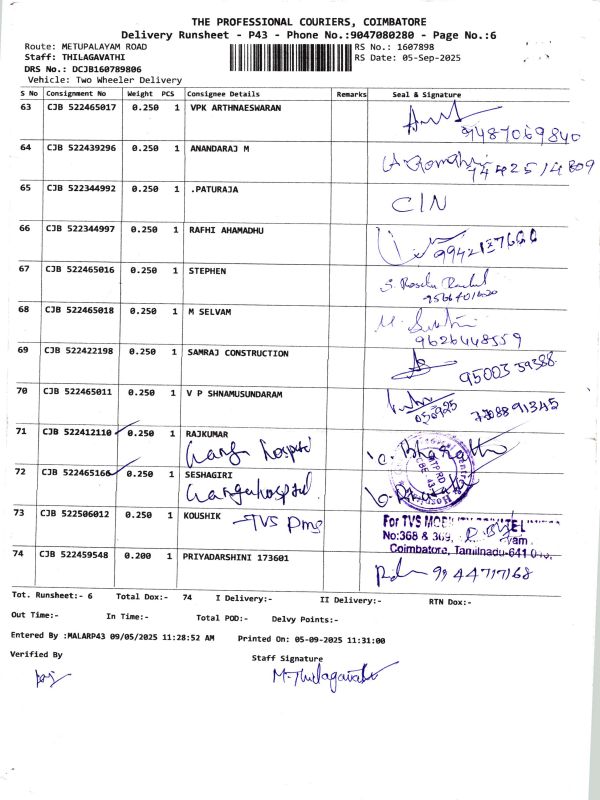 THE PROFESSIONAL COURIERS, COIMBATORE
Delivery Runsheet - P43 - Phone No.:9047080280 - Page No.:6
Route: METUPALAYAM ROAD RS No.: 1607898
Staff: THILAGAVATHI RS Date: 05-Sep-2025
DRS No.: DCJB160789806
Vehicle: Two Wheeler Delivery
S No Consignment No Weight PCS Consignee Details Remarks Seal & Signature
63 CJB 522465017 0.250 1 VPK ARTHNAESWARAN
9487069840
64 CJB 522439296 0.250 1 ANANDARAJ M
7442514809
65 CJB 522344992 0.250 1 .PATURAJA
C/N
66 CJB 522344997 0.250 1 RAFHI AHAMADHU
67 CJB 522465016 0.250 1 STEPHEN
68 CJB 522465018 0.250 1 M SELVAM
9626448559
69 CJB 522422198 0.250 1 SAMRAJ CONSTRUCTION
9500359388
70 CJB 522465011 0.250 1 V P SHNAMUSUNDARAM
050925 7708891345
71 CJB 522412110 0.250 1 RAJKUMAR
Ganga hospital
72 CJB 522465166 0.250 1 SESHAGIRI
Ganga hospital
73 CJB 522506012 0.250 1 KOUSHIK
TVS
For TVS MOBILITY PRIVATE LIMITED
No:368 & 369,
Coimbatore, Tamilnadu-641
74 CJB 522459548 0.200 1 PRIYADARSHINI 173601
9944717168
Tot. Runsheet:- 6 Total Dox:- 74 I Delivery:- II Delivery:- RTN Dox:-
Out Time:- In Time:- Total POD:- Delvy Points:-
Entered By :MALARP43 09/05/2025 11:28:52 AM Printed On: 05-09-2025 11:31:00
Verified By Staff Signature
M.Thilagavathi